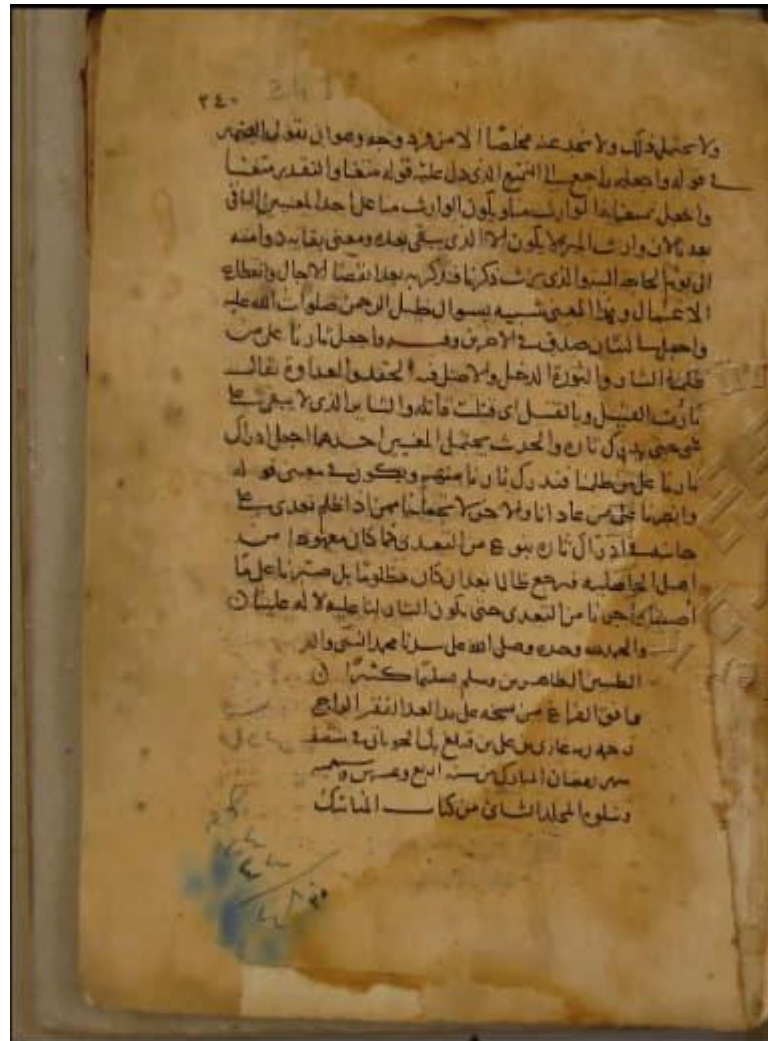 ٢٤٠
ولا يحتمل ذلك ولا نجد عنه مخلصا الا من فرد وجه وهو ان نقول الضمير
في قوله واجعله راجع الى التمتع الذي دل عليه قوله متعنا والتقدير متعنا
واجعل تمتعنا بها الوارث منا ويكون الوارث منا على احد المعنيين الباقي
بعدنا لان وارث المرء لا يكون الا الذي يبقى بعده ومعنى بقائه دوامه
الى يوم الحاجة اليه والذي يرث ذكرنا فنذكر به بعد انقضا الاجال وانقطاع
الاعمال وهذا المعنى شبيه بسوال خليل الرحمن صلوات الله عليه
واجعل لي لسان صدق في الاخرين وفيه واجعل ثارنا على من
ظلمنا الثار والثورة الذحل والاصل فيه الحقد والعداوة يقال
ثارت القتيل وبالقتيل اى قتلت قاتله والثاير الذي لا يبقى على
شى حتى يدرك ثاره والحديث يحتمل المعنيين احدهما اجعل ادراك
ثارنا على من ظلمنا فندرك ثارنا منهم ويكون في معنى قوله
وانصرنا على من عادانا والاخر لا تجعلنا ممن اذا ظلم تعدى على
في ادراك ثاره بنوع من التعدى كما كان معهودا من
اهل الجاهلية فيرجع ظالما بعد ان كان مظلوما بل صبرنا على ما
من التعدى حتى يكون الثار لنا عليه لا له علينا
والحمد لله وحده وصلى الله على سيدنا محمد النبى واله
الطيبين الطاهرين وسلم تسليما كثيرا
وافق الفراغ من نسخه على يد العبد الفقير الراجى
بن على بن
شهر رمضان المبارك من سنة اربع وعشرين
ويتلوه المجلد الثانى من كتاب المناسك